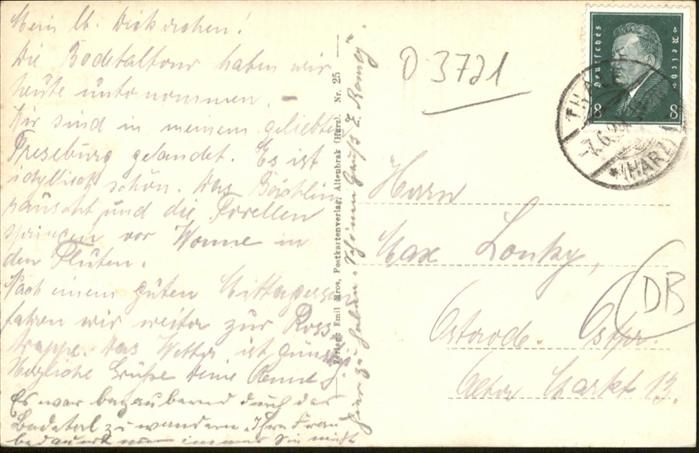 Mein lb. Dickerchen!
Die Bodetaltour haben wir
heute unternommen. –
Wir sind in meinem geliebten
Treseburg gelandet. Es ist
idyllisch schön. Das Bächlein
rauscht und die Forellen
springen vor Wonne in
den Fluten.
Nach einem guten Mittagessen
fahren wir weiter zur Ross
trappe. Das Wetter ist günstig
Herzliche Grüße Deine
Es war bezaubernd durch das
Bodetal zu wandern. Ihre Frau
bedauert nun immer Sie nicht
Emil Gros, Postkartenverlag, Altenbrak (Harz) Nr. 25
D 3721
Deutsches Reich
8 8
THALE
-7.6.
*(HARZ)
Herrn
Max
Osterode. Ostpr.
Alter Markt 13.
DB